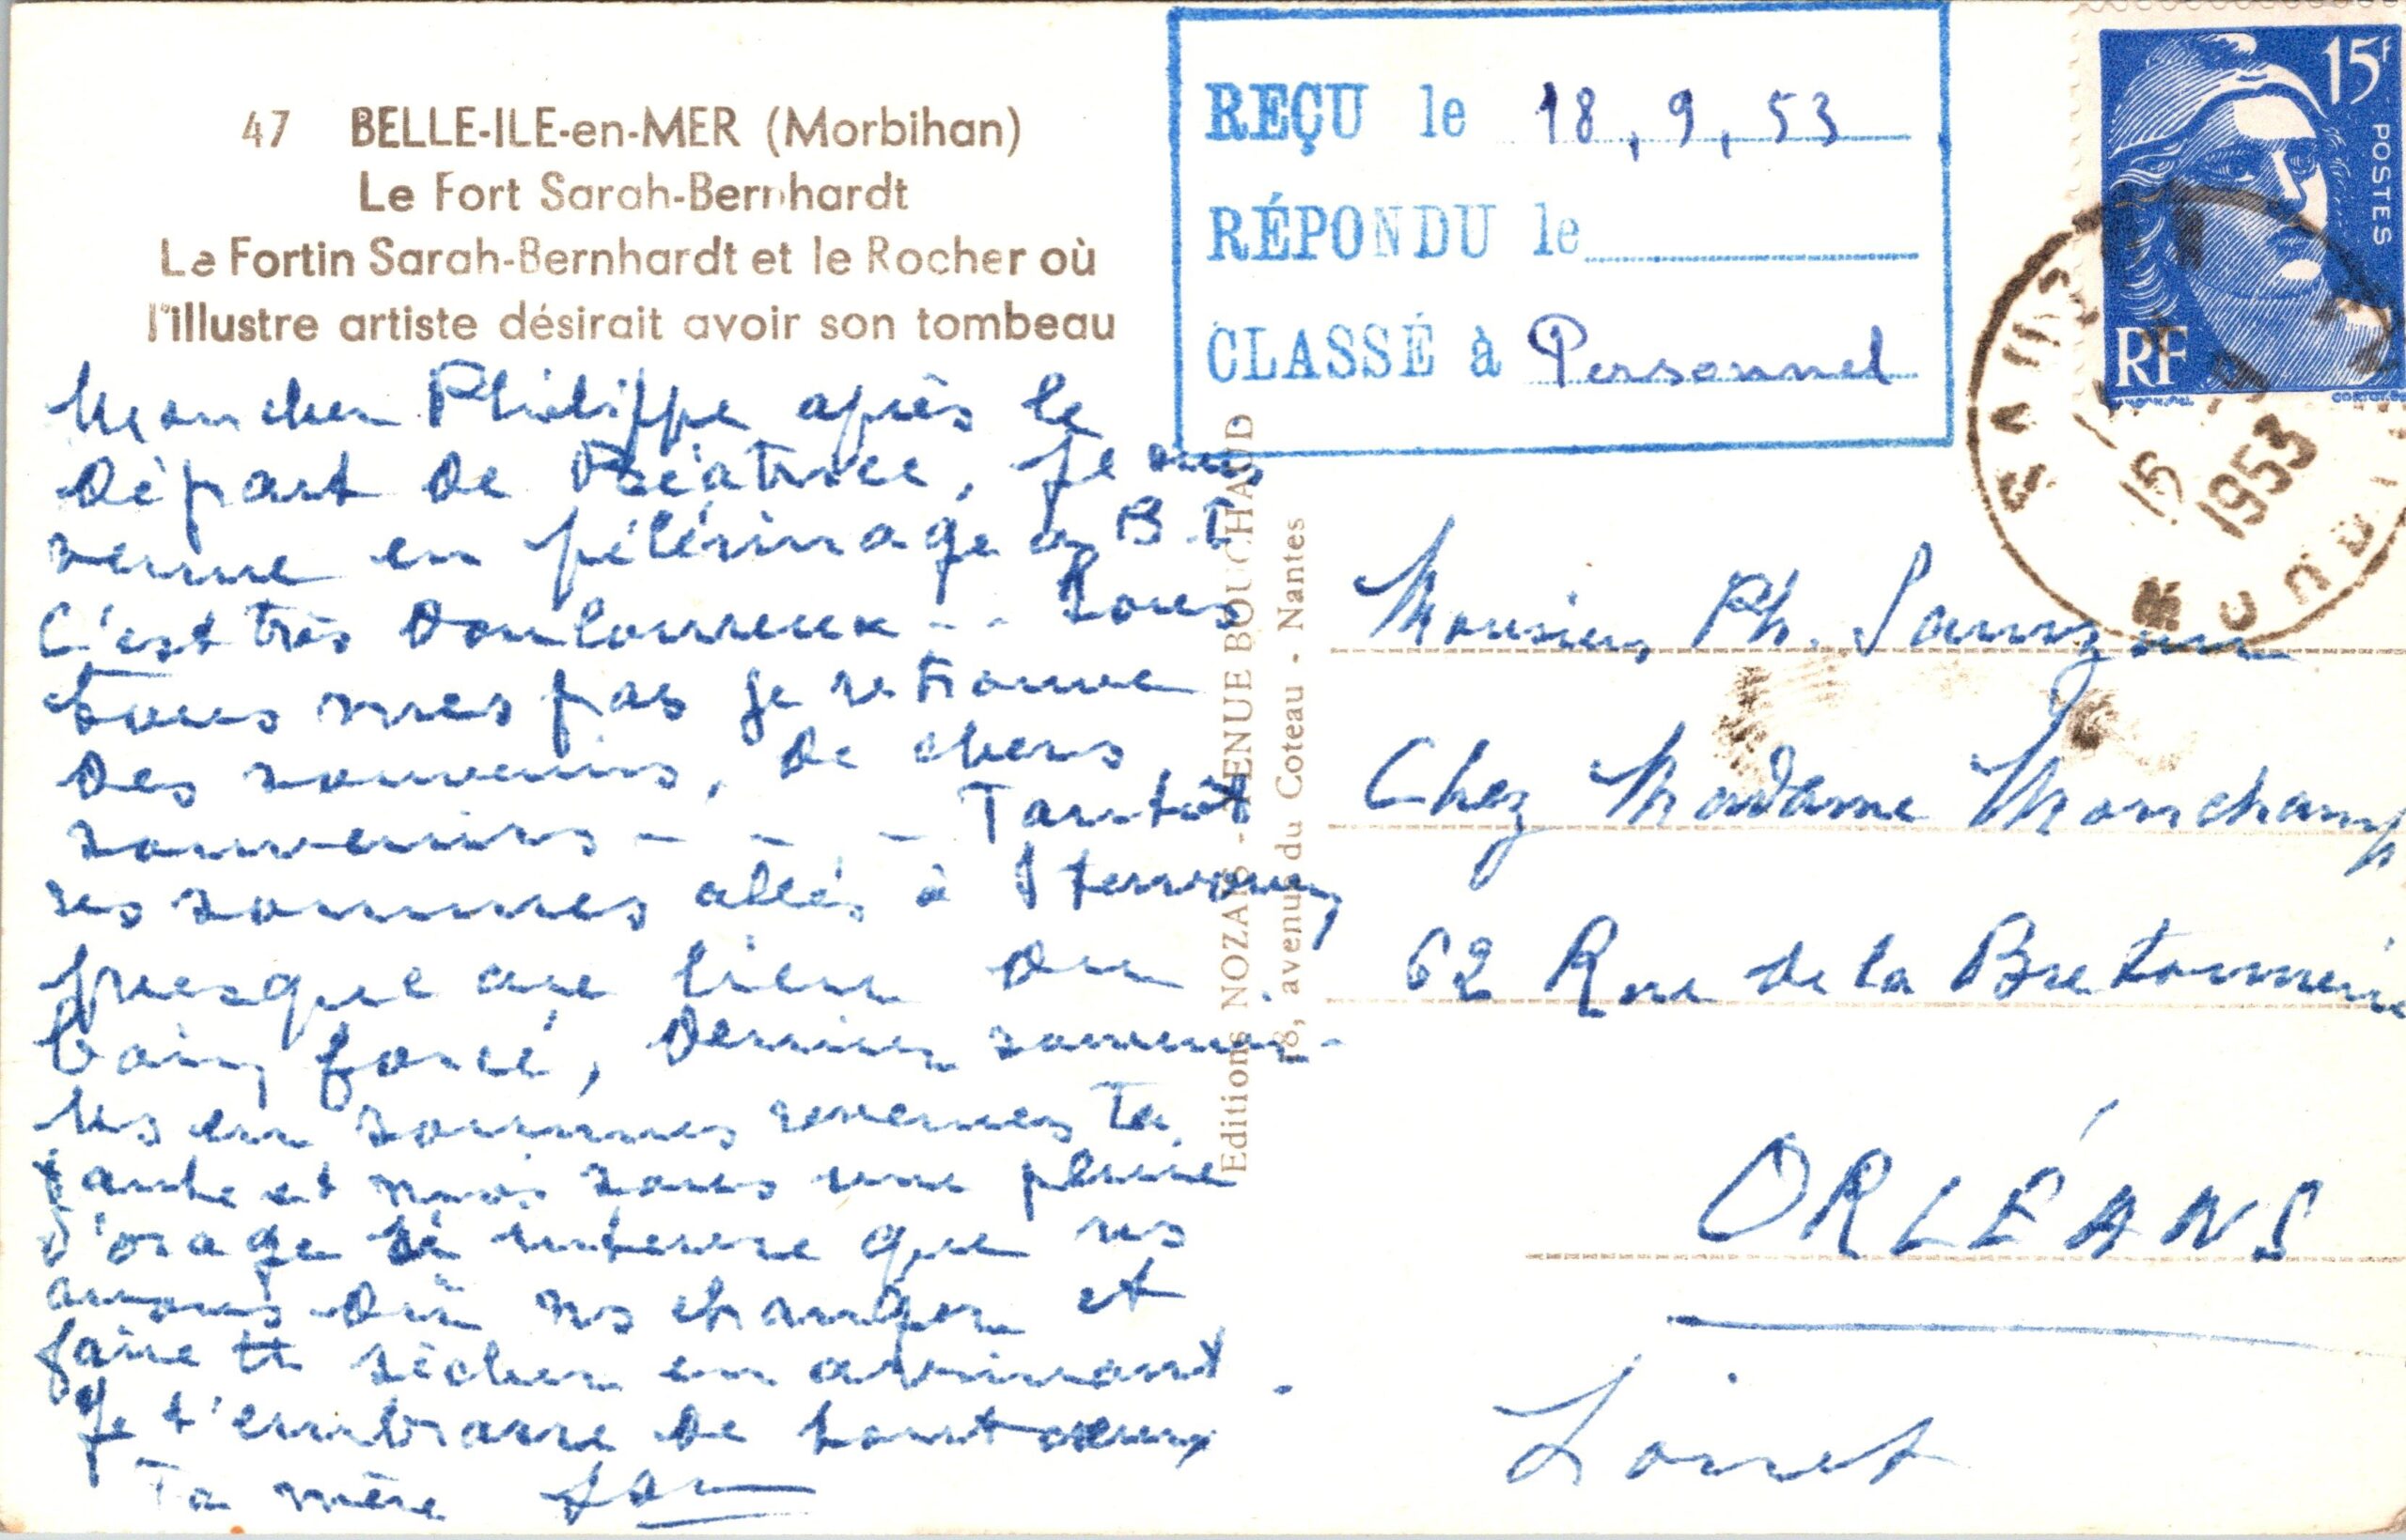 47 BELLE-ILE-en-MER (Morbihan)
Le Fort Sarah-Bernhardt
Le Fortin Sarah-Bernhardt et le Rocher où
l'illustre artiste désirait avoir son tombeau
Mon cher Philippe après le
Départ de Béatrice, je suis
venue en pélérinage a B. I
C'est très Douloureux - - Sous
tous mes pas je retrouve
Des souvenirs, De chers
souvenirs - - - Tantôt
ns sommes allés à
presque au lieu du
bain forcé, Dernier
Ns en sommes revenues ta
tante et moi sous une pluie
d'orage si intense que ns
avons dû ns changer et
faire tt sécher en arrivant.
Je t'embrasse de tout coeur
Ta mère
REÇU le 18, 9, 53
RÉPONDU le
CLASSÉ à Personnel
15f
POSTES
RF
15
1953
Editions NOZAIS - AVENUE BOUCHAUD
18, avenue du Coteau - Nantes
Monsieur Ph.
Chez Madame Monchamp
62 Rue de la Bretonnerie
ORLÉANS
Loiret